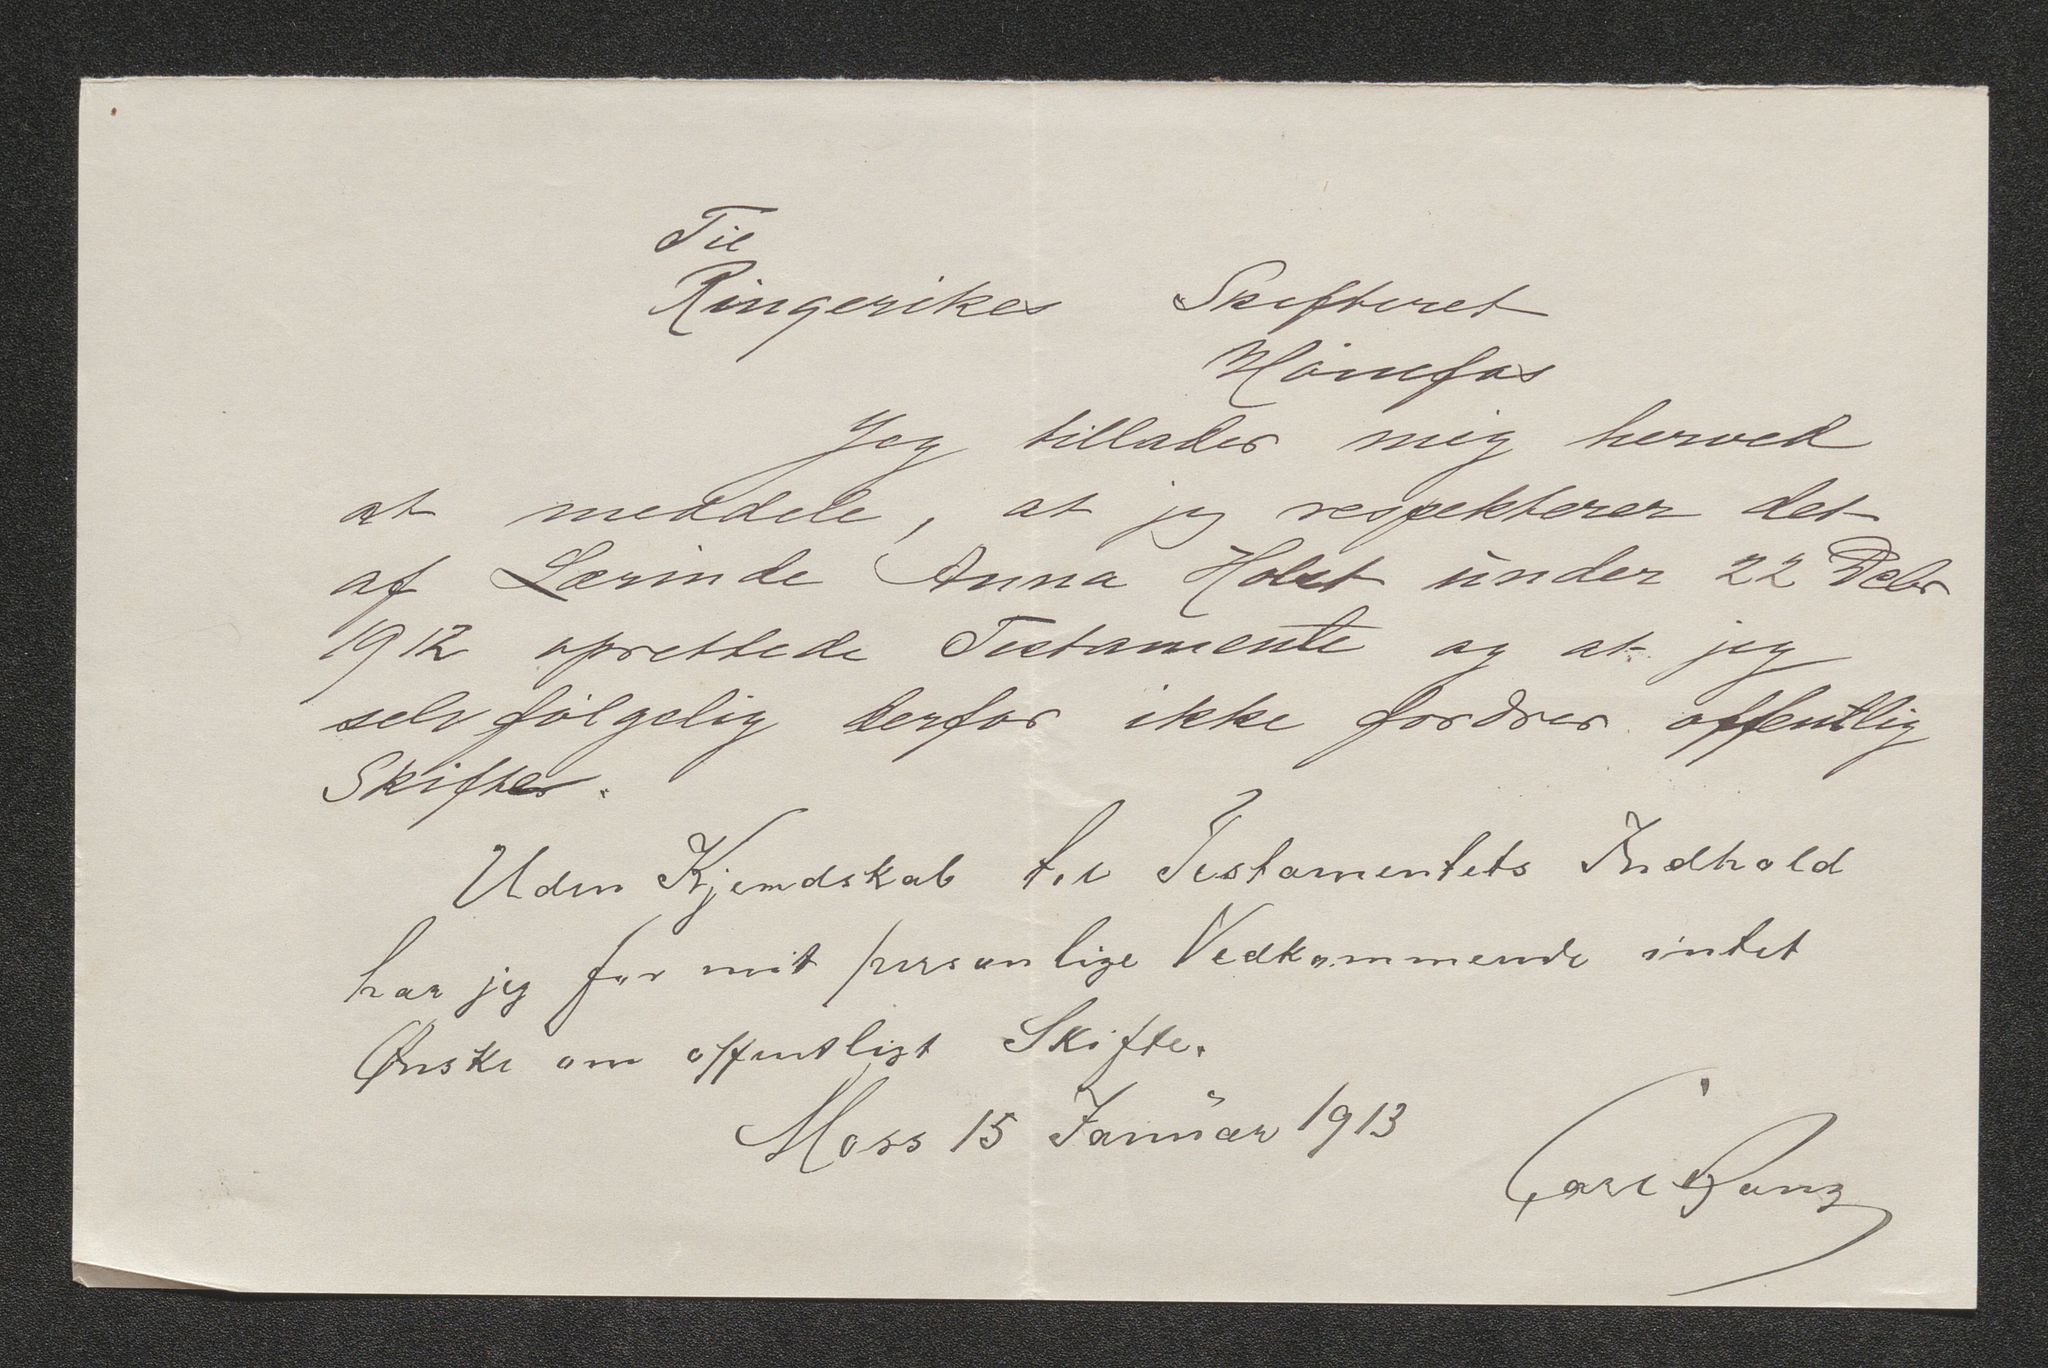 Til
Ringerikes Skifteret
Hönefos
Jeg tillader mig herved
at meddele, at jeg respekterer det
af Lærinde Anna Holst under 22 Debr
1912 oprettede Testamente og at jeg
selvfölgelig derfor ikke fordrer offentlig
Skifte.
Uden Kjendskab til Testamentets Indhold
har jeg for mit personlige Vedkommende intet
Ønske om offentligt Skifte.
Moss 15 Januar 1913
Carl